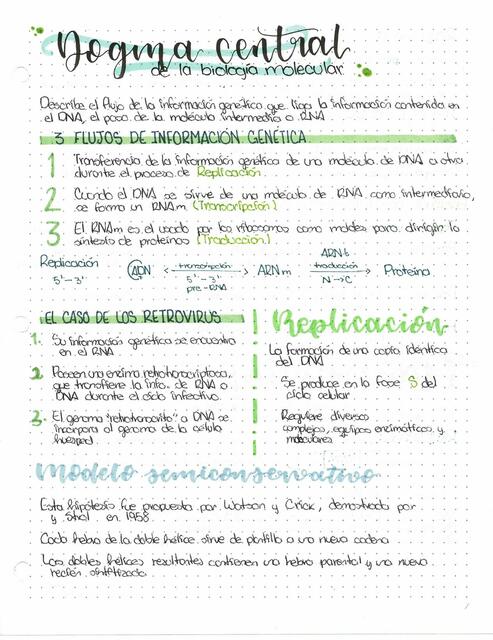 Dogma central
de la biología molecular
Describe el flujo de la información genética que liga la información contenida en
el DNA, el paso de la molécula intermedia o RNA
3 FLUJOS DE INFORMACIÓN GENÉTICA
1 Transferencia de la información genética de una molécula de DNA a otra
durante el proceso de Replicación.
2 Cuando el DNA se sirve de una molécula de RNA como intermediario,
se forma un RNAm (Transcripción)
3 El RNAm es el usado por los ribosomas como moldes para dirigir la
síntesis de proteínas (Traducción)
Replicación
5'-3'
ADN
transcripción
5'-3'
pre-RNA
ARNm
ARNt
traducción
N→C
Proteína
EL CASO DE LOS RETROVIRUS
1. Su información genética se encuentra
en el RNA
2. Poseen una enzima retrotranscriptasa,
que transfiere la info. de RNA a
DNA durante el ciclo infectivo.
3. El genoma "retrotranscrito" a DNA se
incorpora al genoma de la célula
huésped
Replicación
La formación de una copia idéntica
del DNA
Se produce en la fase S del
ciclo celular
Requiere diversos
complejos, equipos enzimáticos y
moleculares
Modelo semiconservativo
Esta hipótesis fue propuesta por Watson y Crick, demostrado por
y Sthal en 1958.
Cada hebra de la doble hélice sirve de plantilla a una nueva cadena
Las dobles hélices resultantes contienen una hebra parental y una nueva
recién sintetizada